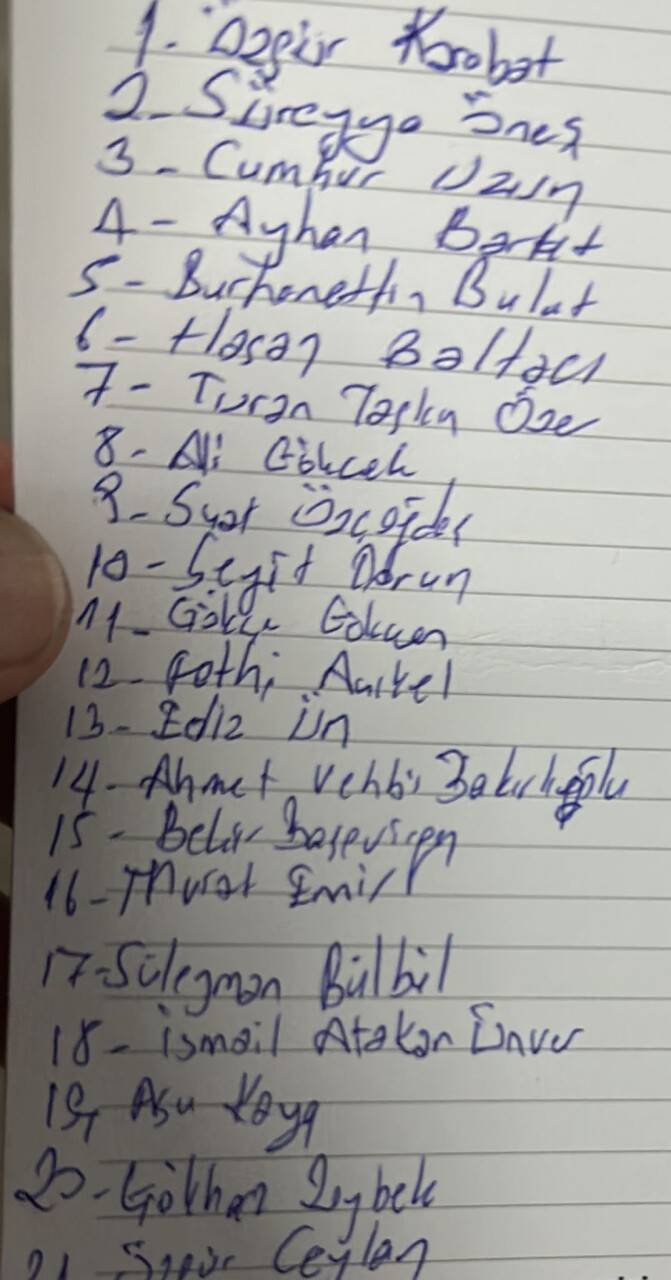 1. Özgür Karabat
2_ Süreyya Öneş
3 - Cumhur Uzun
4 - Ayhan Barut
5 - Burhanettin Bulut
6 - Hasan Baltacı
7 - Turan Taşkın Özer
8 - Ali Gökçek
9 - Suat Özçağdaş
10 - Seyit Torun
11 - Gökçe Gökçen
12 - Fethi Açıkel
13 - Ediz Ün
14 - Ahmet Vehbi Bakırlıoğlu
15 - Bekir Başevirgen
16 - Murat Emir
17 - Süleyman Bülbül
18 - İsmail Atakan Ünver
19, Asu Kaya
20 - Gökhan Zeybek
21 Özgür Ceylan